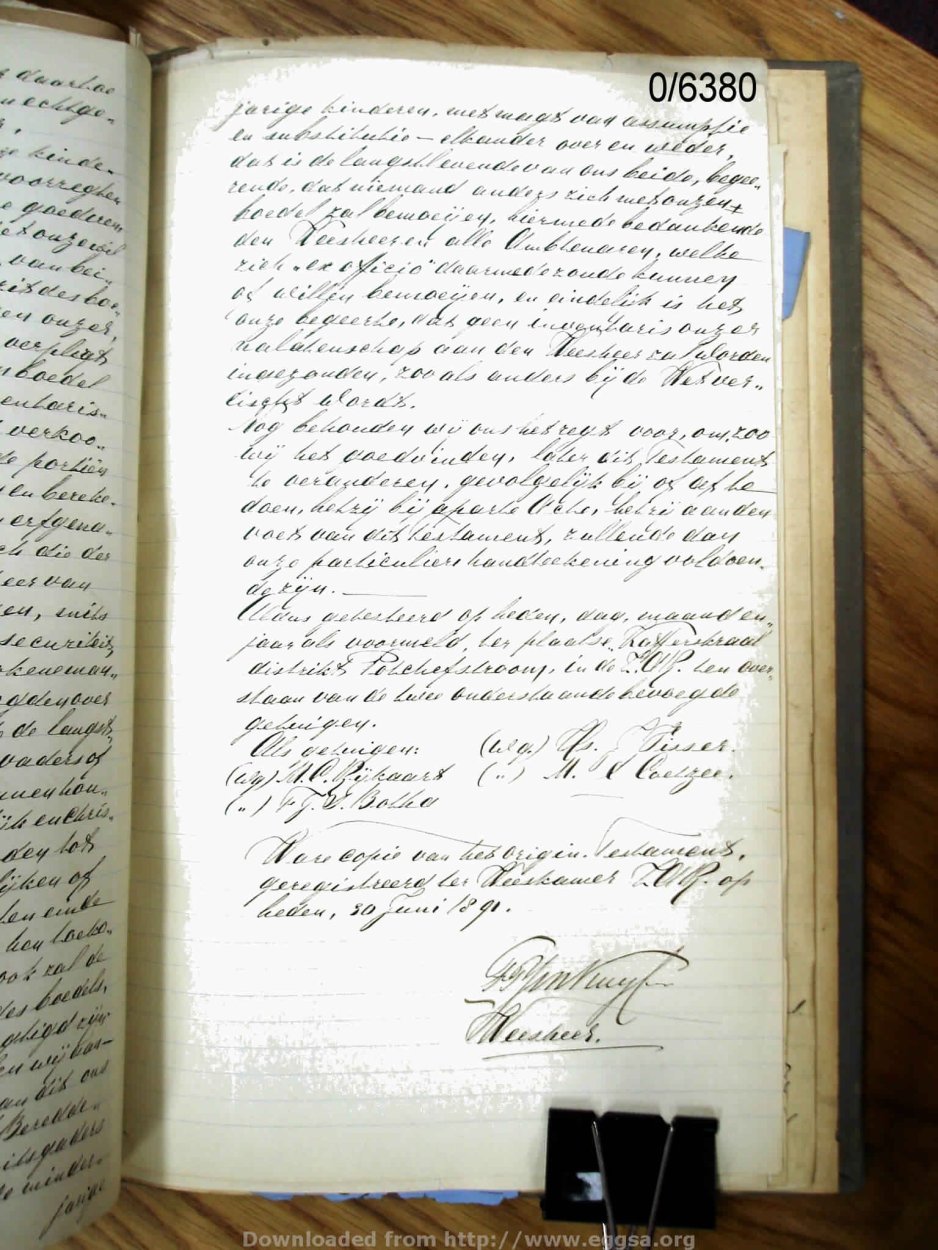 0/6380
jarige kinderen, met magt van assumptie
en substitutie – elkander over en weder,
dat is de langstlevende van ons beide, begee-
rende, dat niemand anders zich met onzen
boedel zal bemoeijen, hiermede bedankende
den Weesheer en alle Ambtenaren, welke
zich "ex officio" daarmede zoude kunnen
of willen bemoeijen, en eindelijk is het
onze begeerte, dat geen inventaris onzer
nalatenschap aan den Weesheer zal worden
ingezonden, zooals anders bij de Wet ver-
eischt wordt.
Nog behouden wij ons het regt voor, om, zoo
wij het goedvinden, later dit Testament
te veranderen, gevolgelijk bij of af te
doen, hetzij bij aparte Acte, hetzij aan den
voet van dit testament, zullende dan
onze particuliere handteekening voldoen-
de zijn.
Aldus getesteerd op heden, dag, maand en
jaar als voormeld, ter plaatse Kafferskraal
distrikt Potchefstroom, in de Z.A.R. ten over-
staan van de twee onderstaande bevoegde
getuigen.
Als getuigen: (wg.) Ps. J Visser.
(wg) M.C. Rijkaart (") M. Coetzee.
(") F.J.S. Botha
Ware copie van het origin. Testament,
geregistreerd ter Weeskamer Z.A.R. op
heden, 30 Juni 1891.
Weesheer.
daartoe
echtge-
kinde-
goederen
van bei
des boe-
onzer
verpligt
boedel
verkoo-
portien
en bereke-
erfgena-
die der
van
securiteit
de langst
vaders of
en chris-
den tot
of
einde
zal de
boedels,
dit ons
Beredde-
minder-
jarige
Downloaded from http://www.eggsa.org